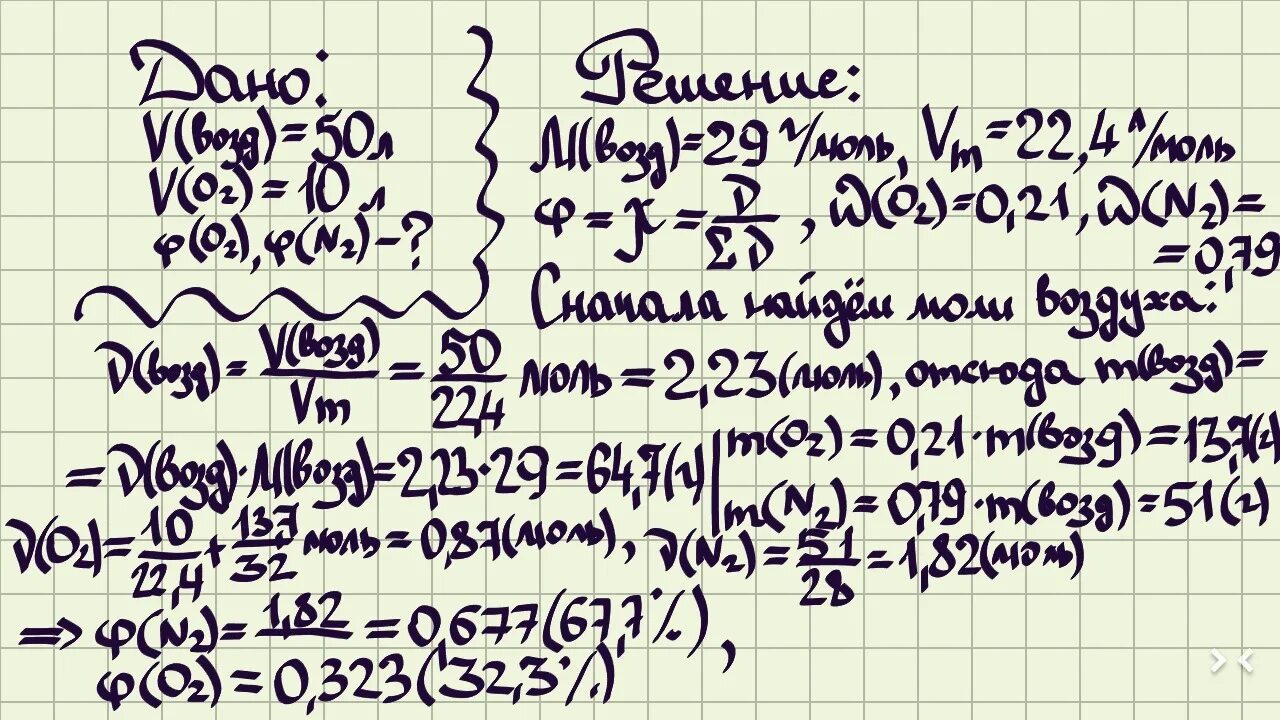 Дано:
V(возд)=50л
V(O₂)=10 л
φ(O₂), φ(N₂)-?
Решение:
M(возд)=29 г/моль, Vm=22,4 л/моль
φ = χ = ν/Σν, ω(O₂)=0,21, ω(N₂)=
=0,79
Сначала найдём моли воздуха:
ν(возд)= V(возд)/Vm = 50/22,4 моль = 2,23 (моль), отсюда m(возд)=
= ν(возд)·M(возд)=2,23·29=64,7(г)
m(O₂)=0,21·m(возд)=13,7(г)
m(N₂)=0,79·m(возд)=51(г)
ν(O₂)= 10/22,4 + 137/32 моль = 0,87(моль), ν(N₂)= 51/28 = 1,82(моль)
⇒ φ(N₂)= 1,82/ = 0,677(67,7%),
φ(O₂)=0,323(32,3%)